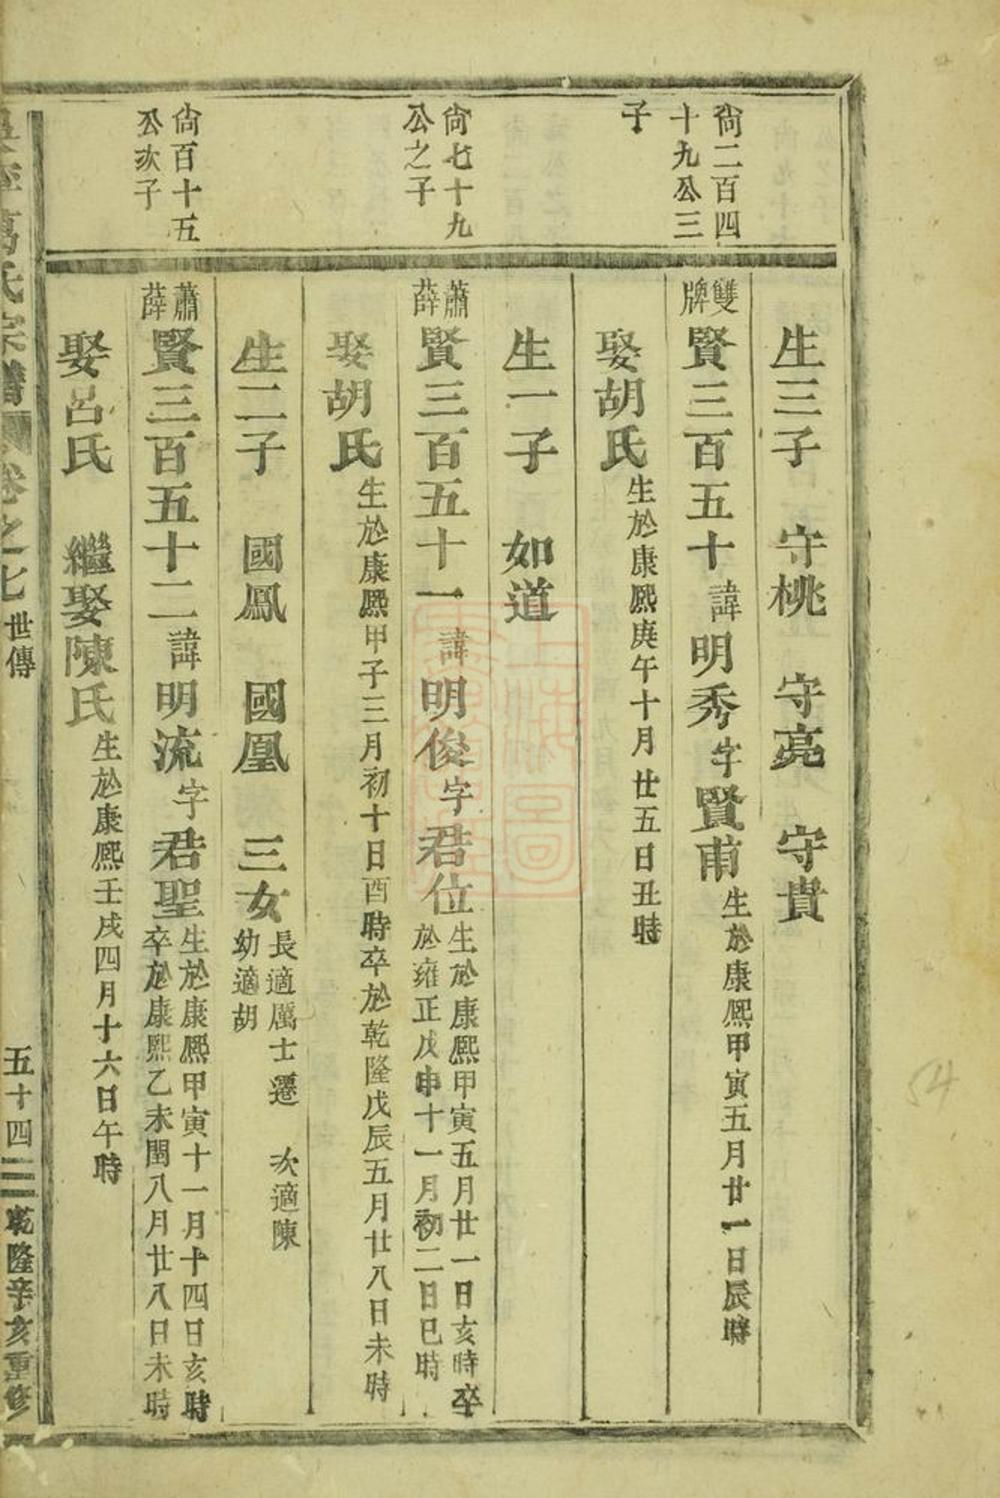 尙二百四
十九公三
子
生三子　守桃　守亮　守貴
雙牌
賢三百五十諱明秀字賢甫生於康熈甲寅五月廿一日辰時
娶胡氏生於康熈庚午十月廿五日丑時
生一子　如道
尙七十九
公之子
蕭薛
賢三百五十一諱明俊字君位生於康熈甲寅五月廿一日亥時卒
於雍正戊申十一月初二日巳時
娶胡氏生於康熈甲子三月初十日酉時卒於乾隆戊辰五月廿八日未時
生二子　國鳳　國凰　三女長適厲士遷　次適陳
幼適胡
尙百十五
公次子
蕭薛
賢三百五十二諱明流字君聖生於康熈甲寅十一月十四日亥時
卒於康熙乙未閏八月廿八日未時
娶呂氏　繼娶陳氏生於康熈壬戌四月十六日午時
萬氏宗譜　卷之七　世傳　五十四　乾隆辛亥重修
上海圖